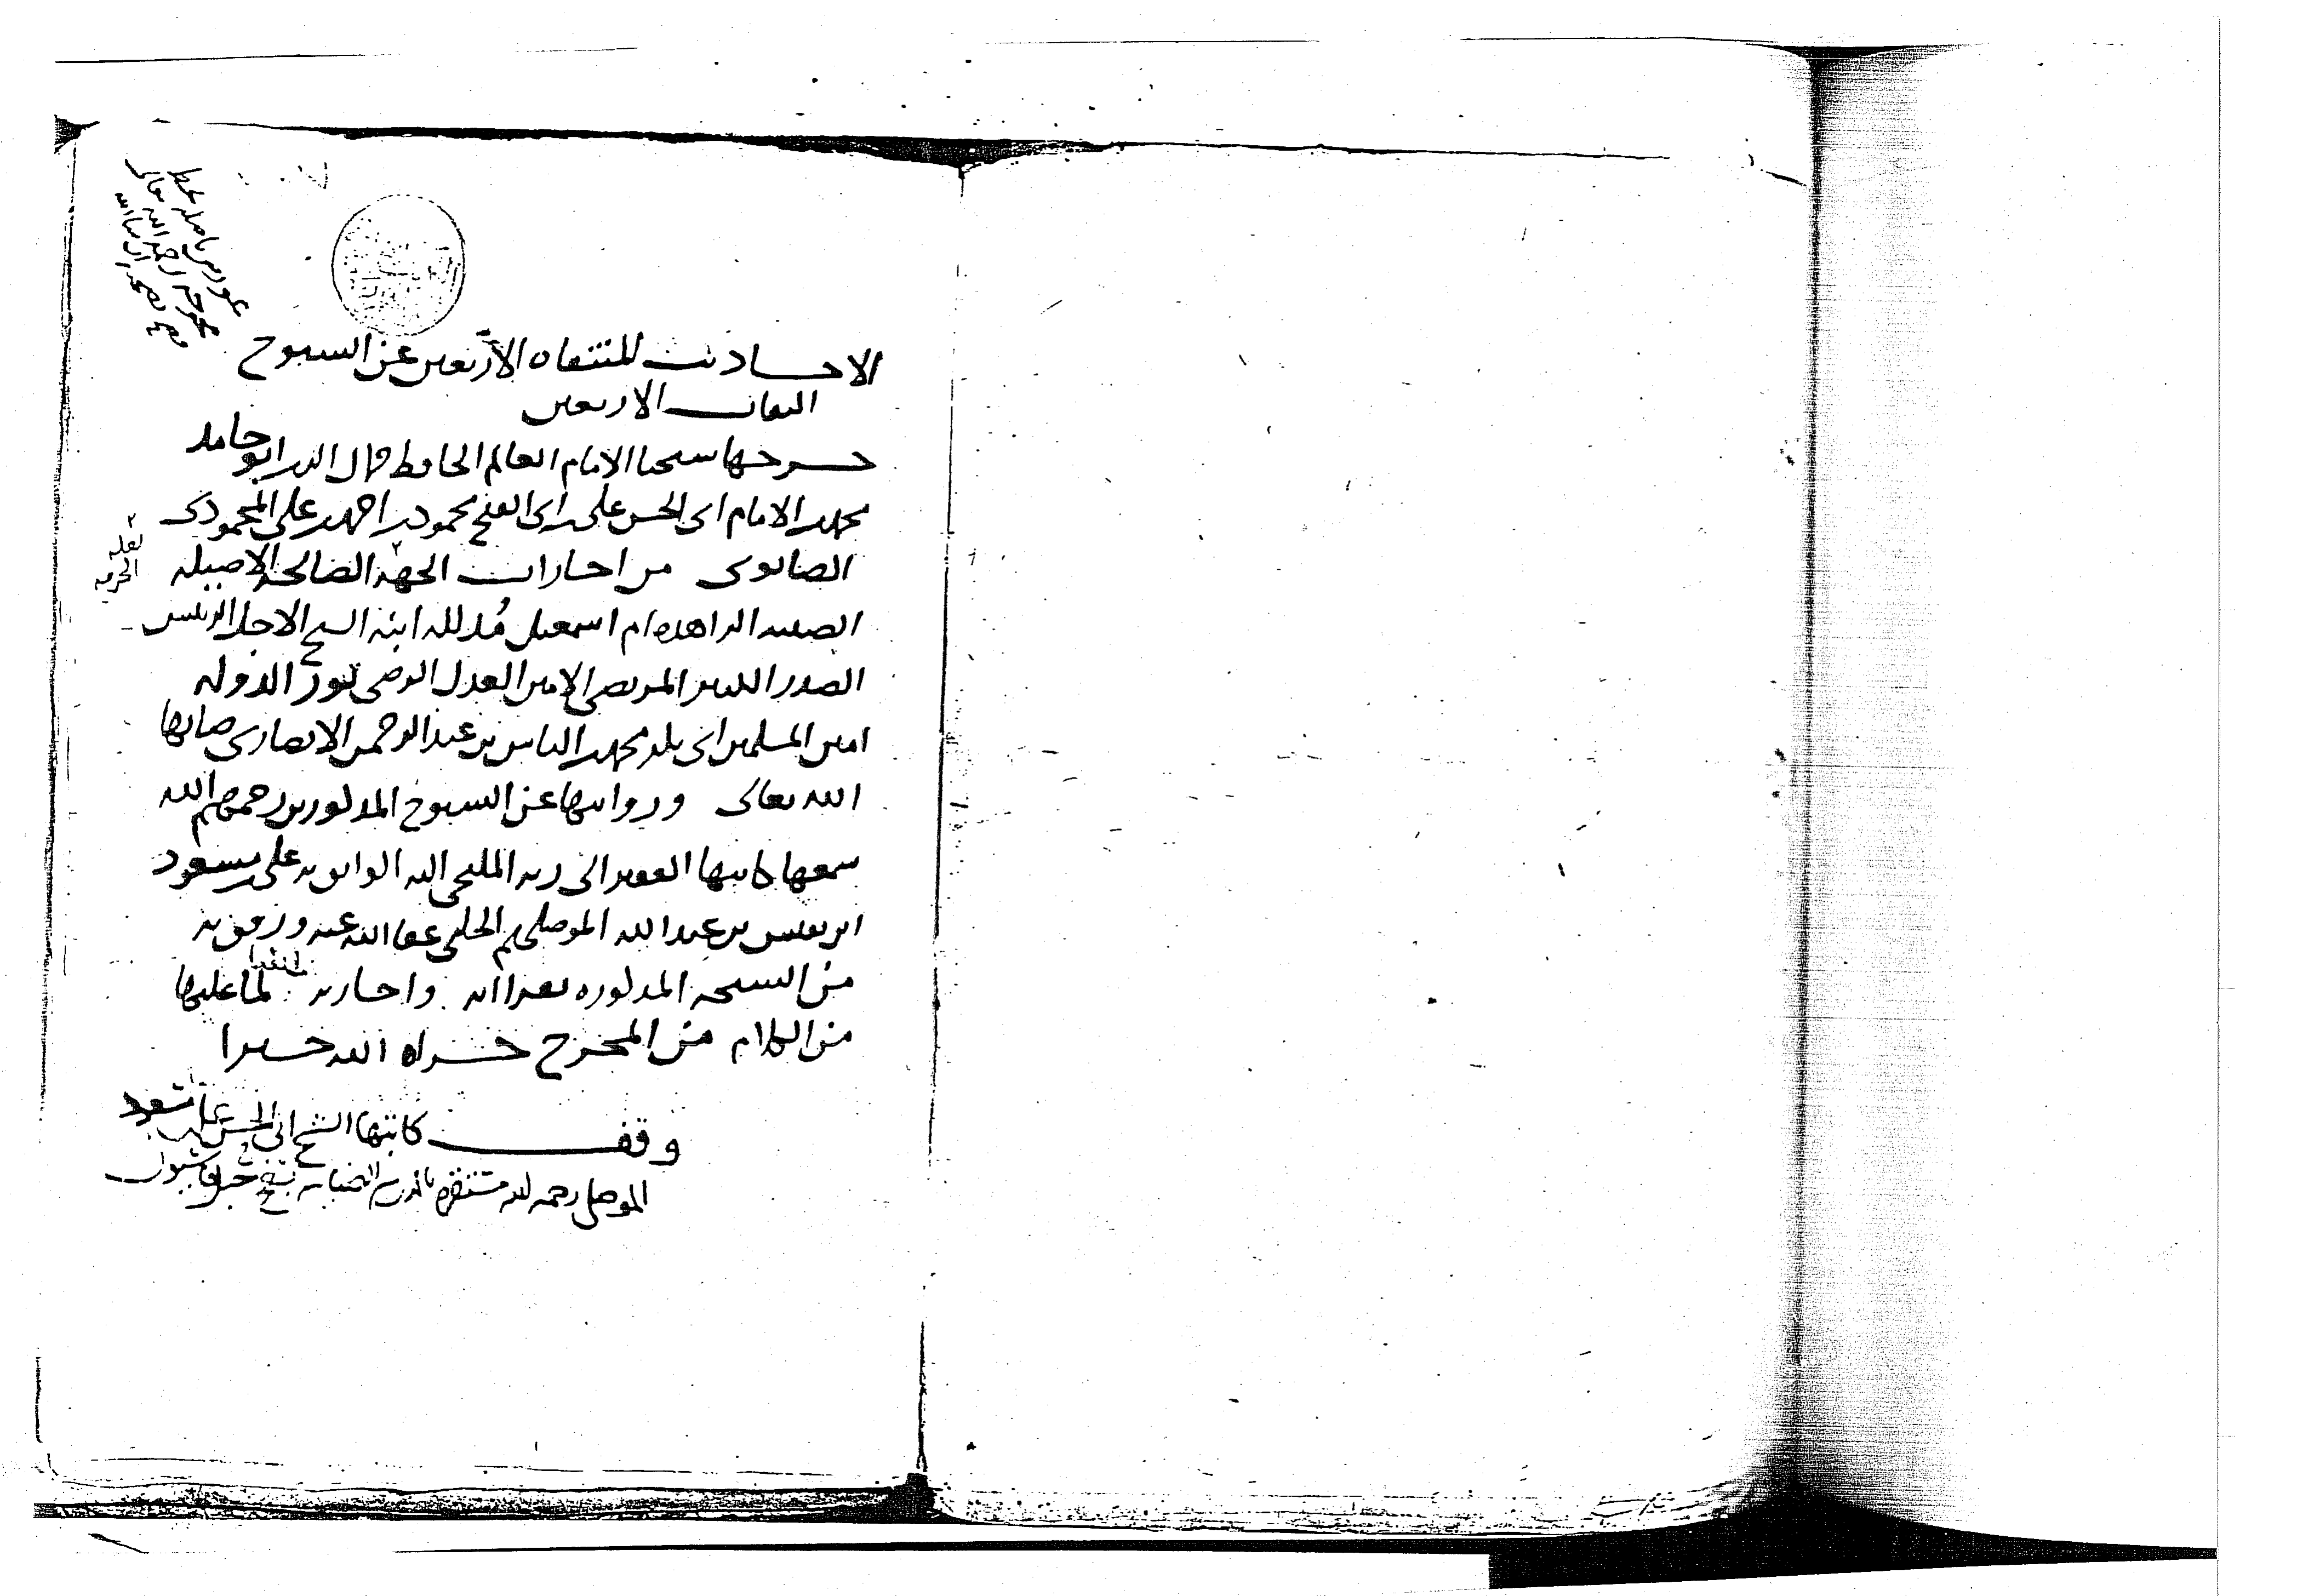 عورض بأصله بخط
مخرجه رحمه الله تعالى
فصح بصحته إن شاء الله
الاحاديث المنتقاه الأربعين عن الشيوخ
الثقات الاربعين
خرجها شيخنا الامام العالم الحافظ جمال الدين ابو حامد
محمد بن الامام ابي الحسن علي بن ابي الفتح محمود بن احمد بن علي المحمودي
الصابوني من اجازات الجهة الصالحة الاصيله
الصينه الزاهده ام اسمعيل مُدلله ابنة الشيخ الاجل الرئيس
الصدر الكبير المرتضى الامين العدل الرضي نور الدولة
امين المسلمين ابي بكر محمد بن الياس بن عبد الرحمن الانصاري صانها
الله تعالى وروايتها عن الشيوخ المذكورين رحمهم الله
سمعها كاتبها الفقير الى ربه الملتجي اليه الواثق به علي بن مسعود
ابن نفيس بن عبد الله الموصلي ثم الحلبي عفا الله عنه ورفق به
من الشيخه المذكوره بقراءته واجازته لما عليها
من الكلام من المخرج جزاه الله خيرا
وقف كاتبها الشيخ ابي الحسن علي بن مسعود
الموصلي رحمه الله مستقره بالمدرسة الضيائيه بسفح جبل قاسيون